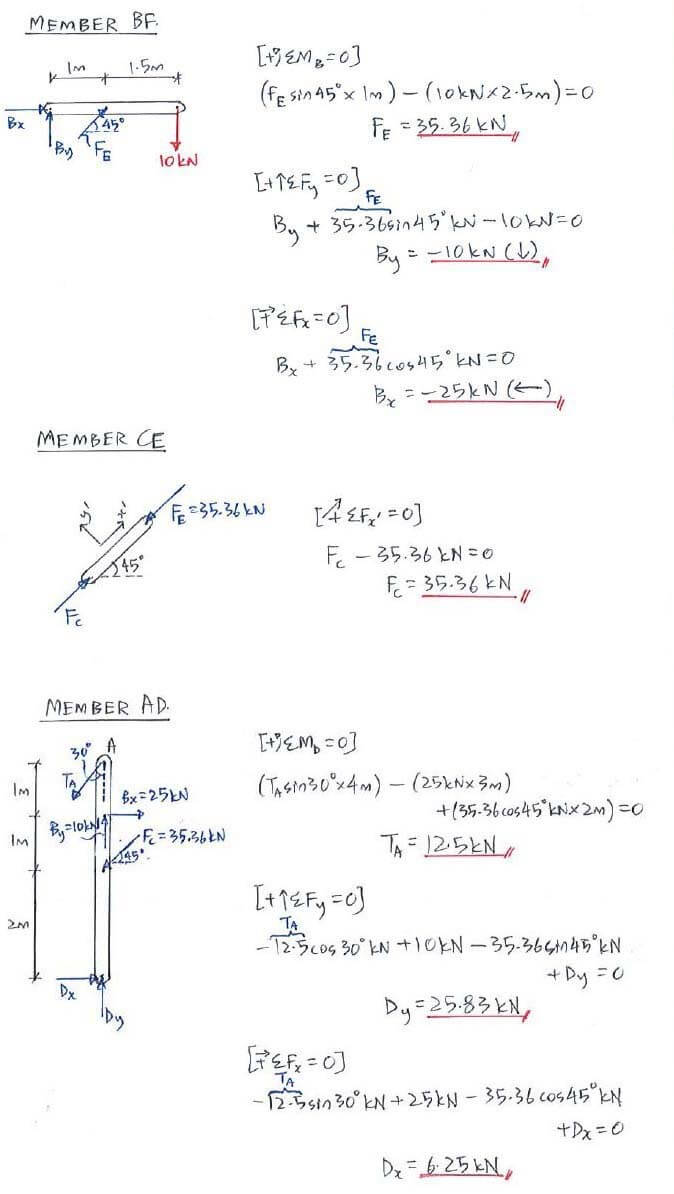 MEMBER BF.
1m 1.5m
Bx By 45° FE 10kN
[+↺ΣM_B=0]
(F_E sin45°×1m) − (10kN×2.5m)=0
F_E = 35.36kN
[+↑ΣFy=0]
FE
By + 35.36sin45°kN − 10kN=0
By = −10kN (↓)
[→+ ΣFx=0]
FE
Bx + 35.36cos45°kN=0
Bx = −25kN (←)
MEMBER CE
y' x' F_E=35.36kN
45°
Fc
[↗+ ΣFx'=0]
Fc − 35.36kN=0
Fc = 35.36kN
MEMBER AD.
30° A
TA
1m
Bx=25kN
By=10kN
1m
Fc=35.36kN
45°
2m
Dx
Dy
[+↺ΣM_D=0]
(T_A sin30°×4m) − (25kN×3m)
+(35.36cos45°kN×2m)=0
T_A = 12.5kN
[+↑ΣFy=0]
TA
−12.5cos30°kN+10kN−35.36sin45°kN
+Dy=0
Dy=25.83kN
[→+ ΣFx=0]
TA
−12.5sin30°kN+25kN−35.36cos45°kN
+Dx=0
Dx=6.25kN